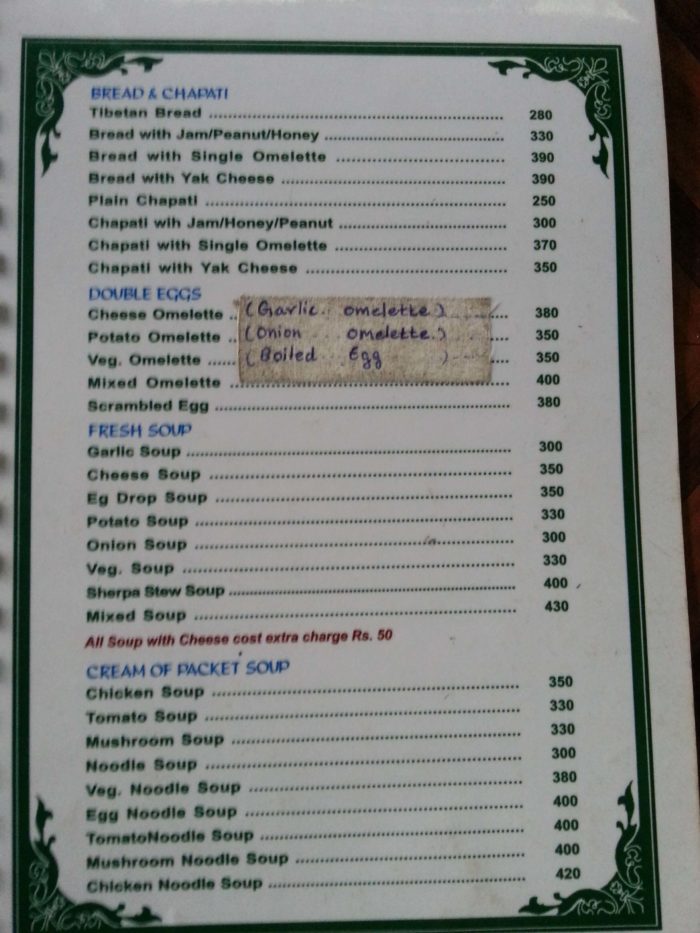 BREAD & CHAPATI
Tibetan Bread ........ 280
Bread with Jam/Peanut/Honey ........ 330
Bread with Single Omelette ........ 390
Bread with Yak Cheese ........ 390
Plain Chapati ........ 250
Chapati wih Jam/Honey/Peanut ........ 300
Chapati with Single Omelette ........ 370
Chapati with Yak Cheese ........ 350
DOUBLE EGGS
Cheese Omelette .. (Garlic.. omelette) ..... 380
Potato Omelette .. (Onion ... omelette.) .. 350
Veg. Omelette ...... (Boiled .. Egg ) .... 350
Mixed Omelette ........ 400
Scrambled Egg ........ 380
FRESH SOUP
Garlic Soup ........ 300
Cheese Soup ........ 350
Eg Drop Soup ........ 350
Potato Soup ........ 330
Onion Soup ........ 300
Veg. Soup ........ 330
Sherpa Stew Soup ........ 400
Mixed Soup ........ 430
All Soup with Cheese cost extra charge Rs. 50
CREAM OF PACKET SOUP
Chicken Soup ........ 350
Tomato Soup ........ 330
Mushroom Soup ........ 330
Noodle Soup ........ 300
Veg. Noodle Soup ........ 380
Egg Noodle Soup ........ 400
TomatoNoodle Soup ........ 400
Mushroom Noodle Soup ........ 400
Chicken Noodle Soup ........ 420